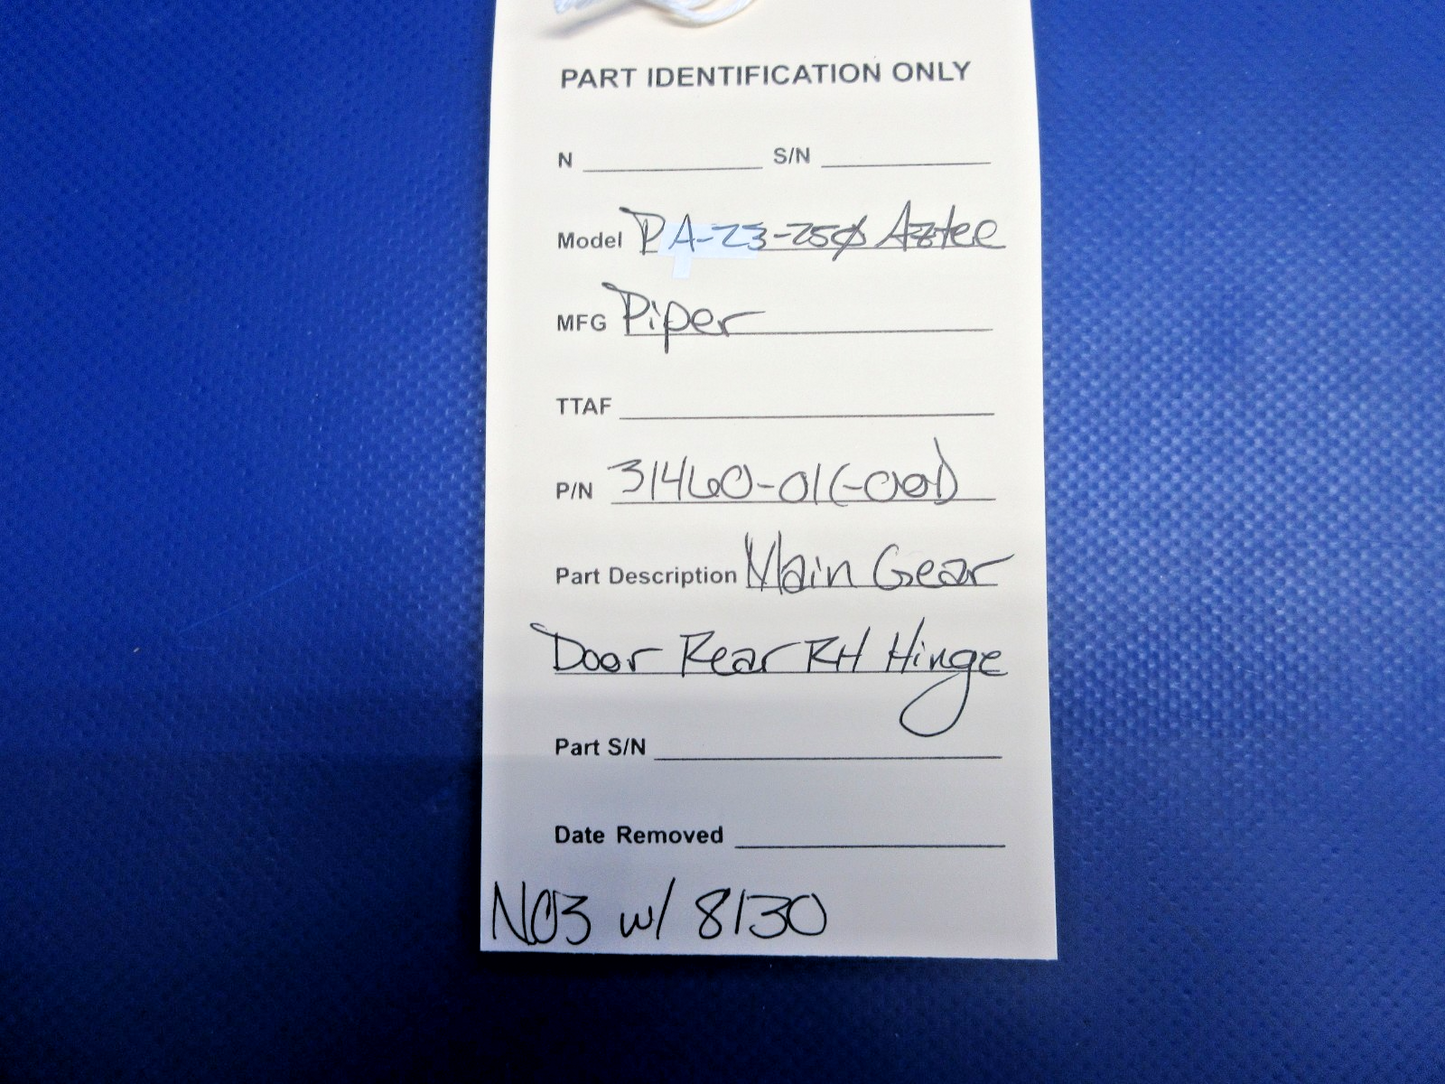 PART IDENTIFICATION ONLY
N S/N
Model PA-23-250 Aztec
MFG Piper
TTAF
P/N 31460-01(-001)
Part Description Main Gear
Door Rear RH Hinge
Part S/N
Date Removed
NOS w/ 8130